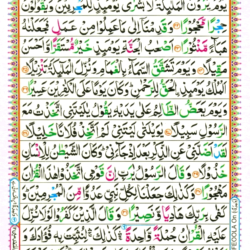 يَوْمَ يَرَوْنَ الْمَلٰٓئِكَةَ لَا بُشْرٰى يَوْمَئِذٍ لِّلْمُجْرِمِيْنَ وَيَقُوْلُوْنَ
حِجْرًا مَّحْجُوْرًا وَقَدِمْنَآ اِلٰى مَا عَمِلُوْا مِنْ عَمَلٍ فَجَعَلْنٰهُ
هَبَآءً مَّنْثُوْرًا اَصْحٰبُ الْجَنَّةِ يَوْمَئِذٍ خَيْرٌ مُّسْتَقَرًّا وَّاَحْسَنُ
مَقِيْلًا وَيَوْمَ تَشَقَّقُ السَّمَآءُ بِالْغَمَامِ وَنُزِّلَ الْمَلٰٓئِكَةُ تَنْزِيْلًا
اَلْمُلْكُ يَوْمَئِذِ ۨالْحَقُّ لِلرَّحْمٰنِ وَكَانَ يَوْمًا عَلَى الْكٰفِرِيْنَ عَسِيْرًا
وَيَوْمَ يَعَضُّ الظَّالِمُ عَلٰى يَدَيْهِ يَقُوْلُ يٰلَيْتَنِى اتَّخَذْتُ مَعَ
الرَّسُوْلِ سَبِيْلًا يٰوَيْلَتٰى لَيْتَنِىْ لَمْ اَتَّخِذْ فُلَانًا خَلِيْلًا
لَقَدْ اَضَلَّنِىْ عَنِ الذِّكْرِ بَعْدَ اِذْ جَآءَنِىْ وَكَانَ الشَّيْطٰنُ لِلْاِنْسَانِ
خَذُوْلًا وَقَالَ الرَّسُوْلُ يٰرَبِّ اِنَّ قَوْمِى اتَّخَذُوْا هٰذَا
الْقُرْاٰنَ مَهْجُوْرًا وَكَذٰلِكَ جَعَلْنَا لِكُلِّ نَبِىٍّ عَدُوًّا مِّنَ الْمُجْرِمِيْنَ وَ
كَفٰى بِرَبِّكَ هَادِيًا وَّنَصِيْرًا وَقَالَ الَّذِيْنَ كَفَرُوْا لَوْلَا نُزِّلَ
عَلَيْهِ الْقُرْاٰنُ جُمْلَةً وَّاحِدَةً كَذٰلِكَ لِنُثَبِّتَ بِهٖ فُؤَادَكَ وَ